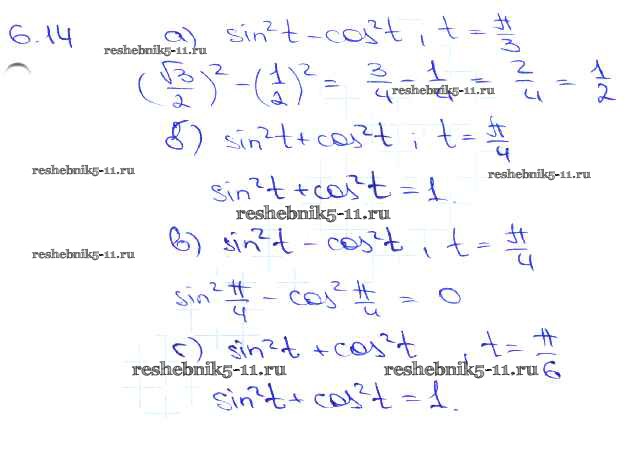 6.14 а) sin²t – cos²t, t = π/3
reshebnik5-11.ru
(√3/2)² – (1/2)² = 3/4 – 1/4 = 2/4 = 1/2
reshebnik5-11.ru
б) sin²t + cos²t; t = π/4
reshebnik5-11.ru
reshebnik5-11.ru
sin²t + cos²t = 1.
reshebnik5-11.ru
в) sin²t – cos²t, t = π/4
reshebnik5-11.ru
sin² π/4 – cos² π/4 = 0
с) sin²t + cos²t, t = π/6
reshebnik5-11.ru
reshebnik5-11.ru
sin²t + cos²t = 1.